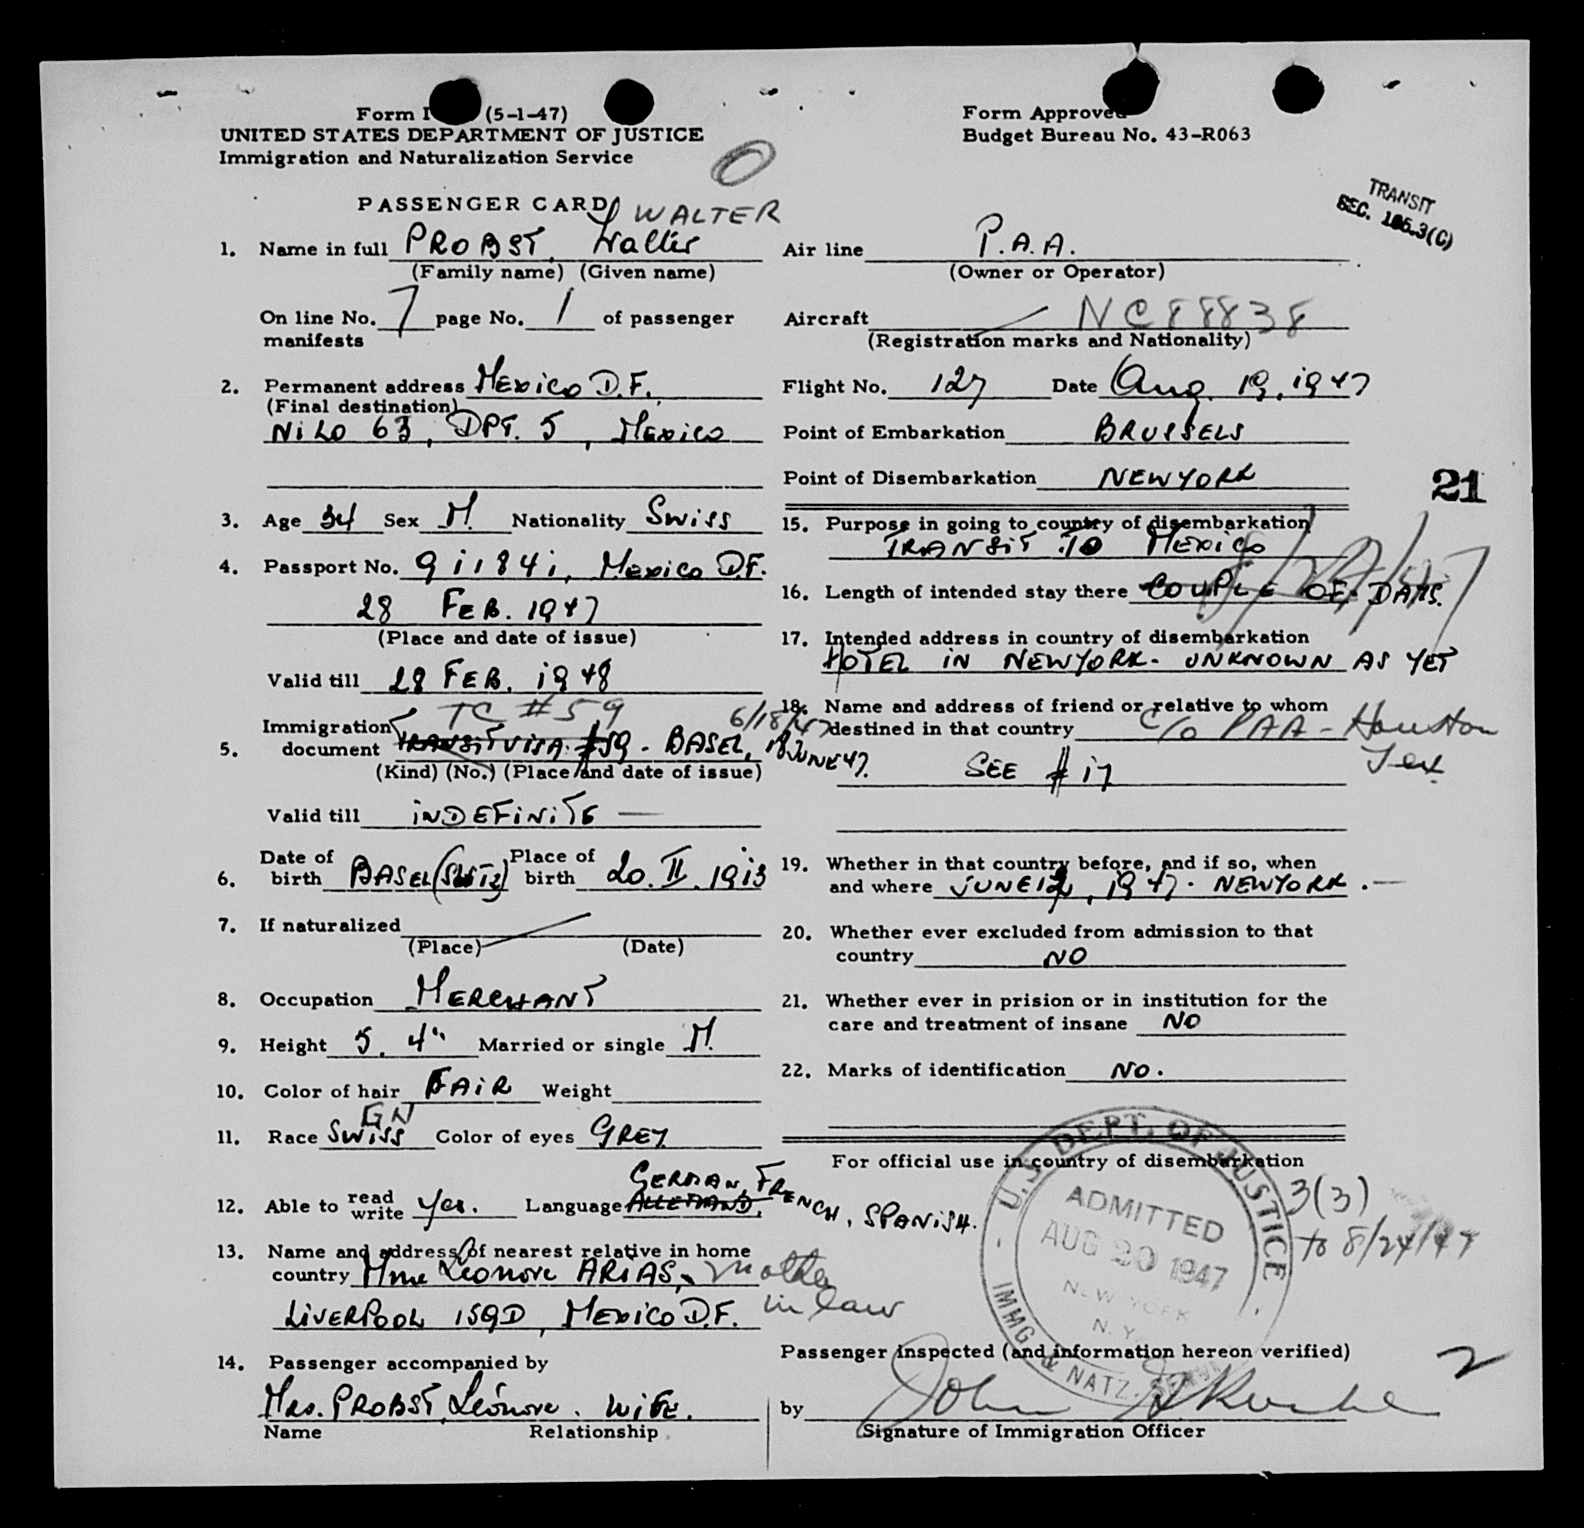 Form I (5-1-47)
UNITED STATES DEPARTMENT OF JUSTICE
Immigration and Naturalization Service
Form Approved
Budget Bureau No. 43-R063
TRANSIT
SEC. 105.3(C)
PASSENGER CARD
WALTER
1. Name in full PROBST, Walter
(Family name) (Given name)
On line No. 7 page No. 1 of passenger
manifests
2. Permanent address Mexico D.F.,
(Final destination)
NiLO 63, DPT. 5, Mexico
3. Age 34 Sex M. Nationality Swiss
4. Passport No. 911841, Mexico D.F.
28 FEB. 1947
(Place and date of issue)
Valid till 28 FEB. 1948
TC #59 6/18/47
5. Immigration
document TRANSIT VISA. #59 - BASEL, 18 JUNE 47.
(Kind) (No.) (Place and date of issue)
Valid till iNDEFiNiTE —
6. Date of birth BASEL (SWTZ) Place of birth 20. II. 1913
7. If naturalized
(Place) (Date)
8. Occupation MERCHANT
9. Height 5. 4" Married or single M.
10. Color of hair FAiR Weight
GN
11. Race SWiSS Color of eyes GREY
12. Able to read write Yes. Language ALLEMAND, GERMAN, FRENCH, SPANiSH.
13. Name and address of nearest relative in home
country Mme Leonore ARIAS, mother
in law
LiVERPOOL 159D, MEXiCO D.F.
14. Passenger accompanied by
Mrs. PROBST, Léonore. WiFE.
Name Relationship
Air line P.A.A.
(Owner or Operator)
Aircraft NC88838
(Registration marks and Nationality)
Flight No. 127 Date Aug. 19, 1947
Point of Embarkation BRUSSELS
Point of Disembarkation NEWYORK
21
15. Purpose in going to country of disembarkation
TRANSiT TO MEXiCO
16. Length of intended stay there COUPLE OF DAYS.
17. Intended address in country of disembarkation
HOTEL iN NEWYORK - UNKNOWN AS YET
18. Name and address of friend or relative to whom
destined in that country c/o PAA - Houston
Tex.
SEE # 17
19. Whether in that country before, and if so, when
and where JUNE 12, 1947. NEWYORK. —
20. Whether ever excluded from admission to that
country NO
21. Whether ever in prision or in institution for the
care and treatment of insane NO
22. Marks of identification NO.
For official use in country of disembarkation
U.S. DEPT. OF JUSTICE
ADMITTED
AUG 20 1947
NEW YORK
N. Y.
IMMG & NATZ. SERVICE
3(3)
to 8/24/47
Passenger inspected (and information hereon verified)
2
by John
Signature of Immigration Officer